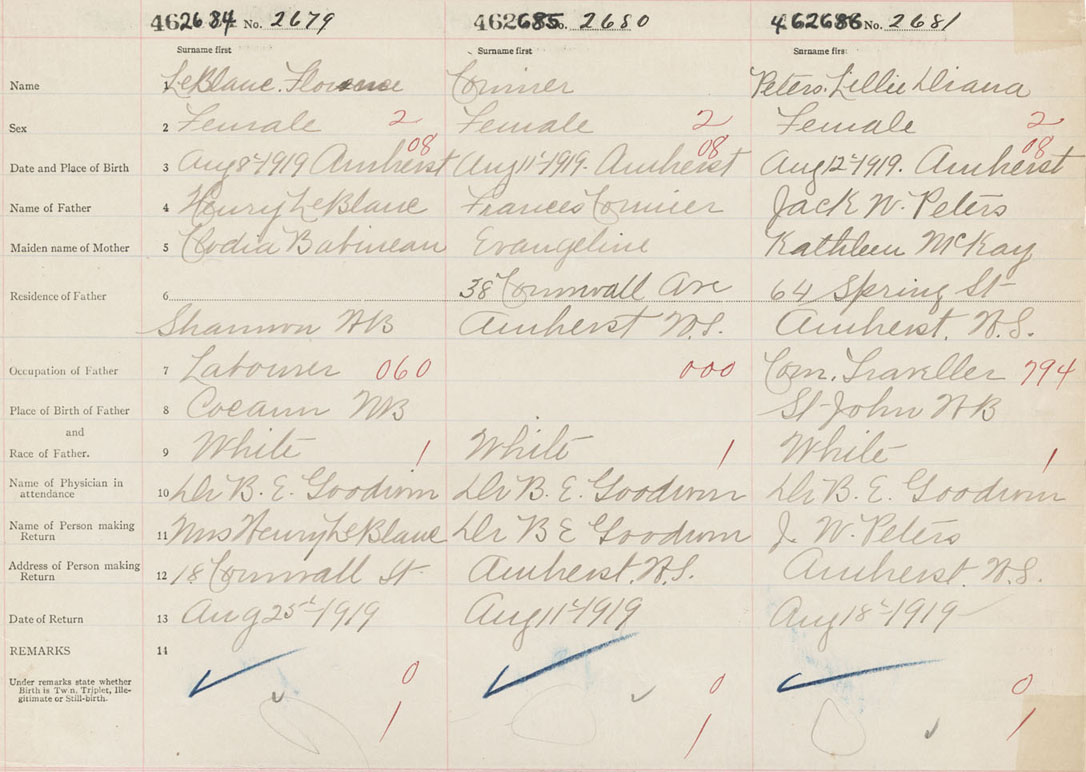 462684 No. 2679 462685 No. 2680 462686 No. 2681
Surname first Surname first Surname first
Name 1 LeBlanc. Florence Cormier Peters. Lillie Diana
Sex 2 Female 2 Female 2 Female 2
08 08 08
Date and Place of Birth 3 Aug 8th 1919 Amherst Aug 11th 1919. Amherst Aug 12th 1919. Amherst
Name of Father 4 Henry LeBlanc Frances Cormier Jack W. Peters
Maiden name of Mother 5 Clodia Babineau Evangeline Kathleen McKay
Residence of Father 6 38 Cornwall Ave 64 Spring St
Shannon NB Amherst N.S. Amherst. N.S.
Occupation of Father 7 Labourer 060 000 Com. Traveller 794
Place of Birth of Father 8 Cocann NB St John NB
and
Race of Father. 9 White 1 White 1 White 1
Name of Physician in
attendance 10 Dr B. E. Goodwin Dr B. E. Goodwin Dr B. E. Goodwin
Name of Person making
Return 11 Mrs Henry LeBlanc Dr B E Goodwin J. W. Peters
Address of Person making
Return 12 18 Cornwall St. Amherst. N.S. Amherst. N.S.
Date of Return 13 Aug 25th 1919 Aug 11th 1919 Aug 18th 1919
REMARKS 14
Under remarks state whether
Birth is Twin, Triplet, Ille-
gitimate or Still-birth.
0 0 0
1 1 1